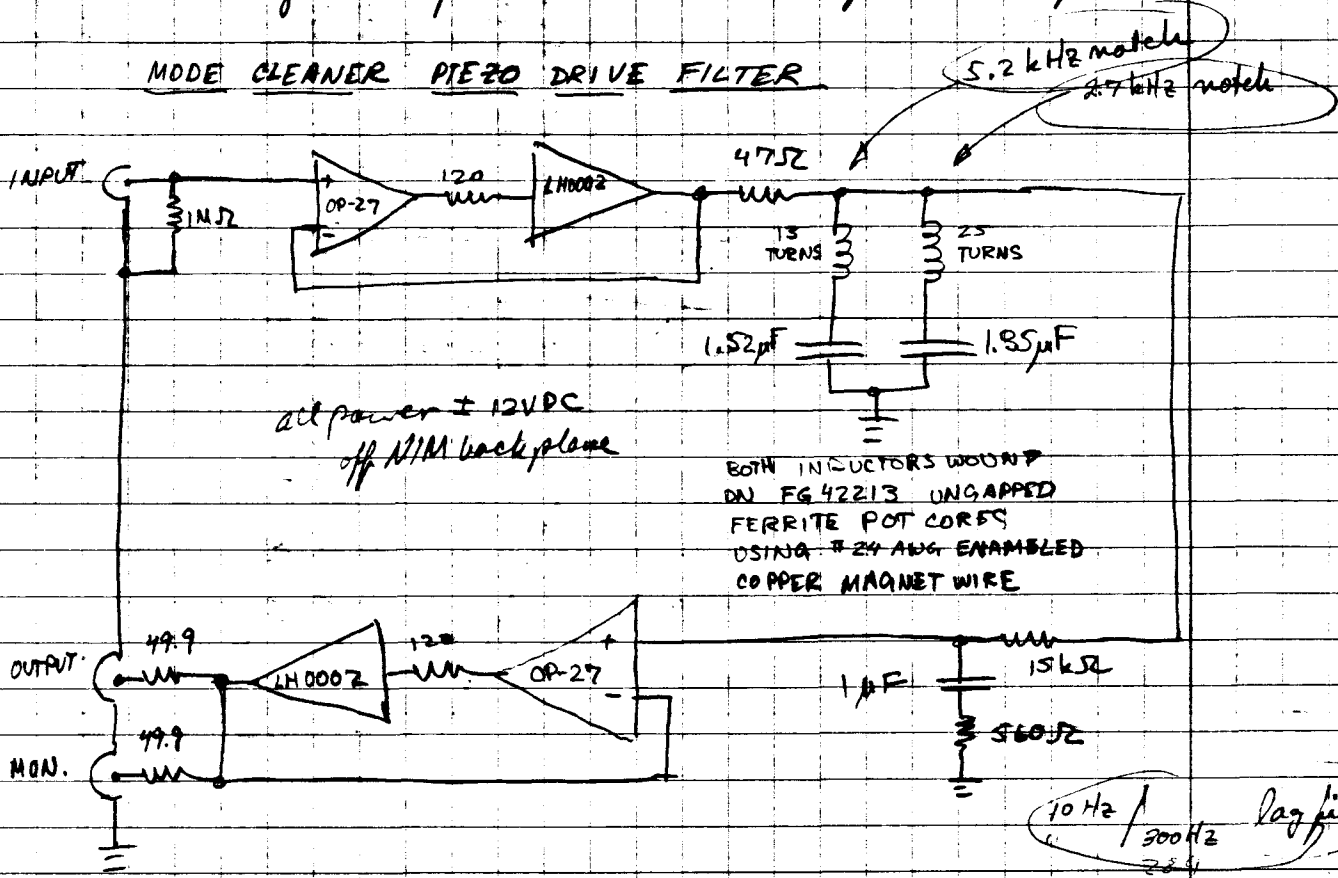 MODE CLEANER PIEZO DRIVE FILTER
5.2 kHz notch
2.7 kHz notch
INPUT
1MΩ
+
OP-27
-
120
LH0002
47Ω
13
TURNS
25
TURNS
1.52μF
1.85μF
all power ± 12VDC
off NIM back plane
BOTH INDUCTORS WOUND
ON FG 42213 UNGAPPED
FERRITE POT CORES
USING #24 AWG ENAMELED
COPPER MAGNET WIRE
OUTPUT
49.9
LH0002
120
OP-27
+
-
15kΩ
1μF
560Ω
MON.
49.9
10 Hz / 300Hz lag